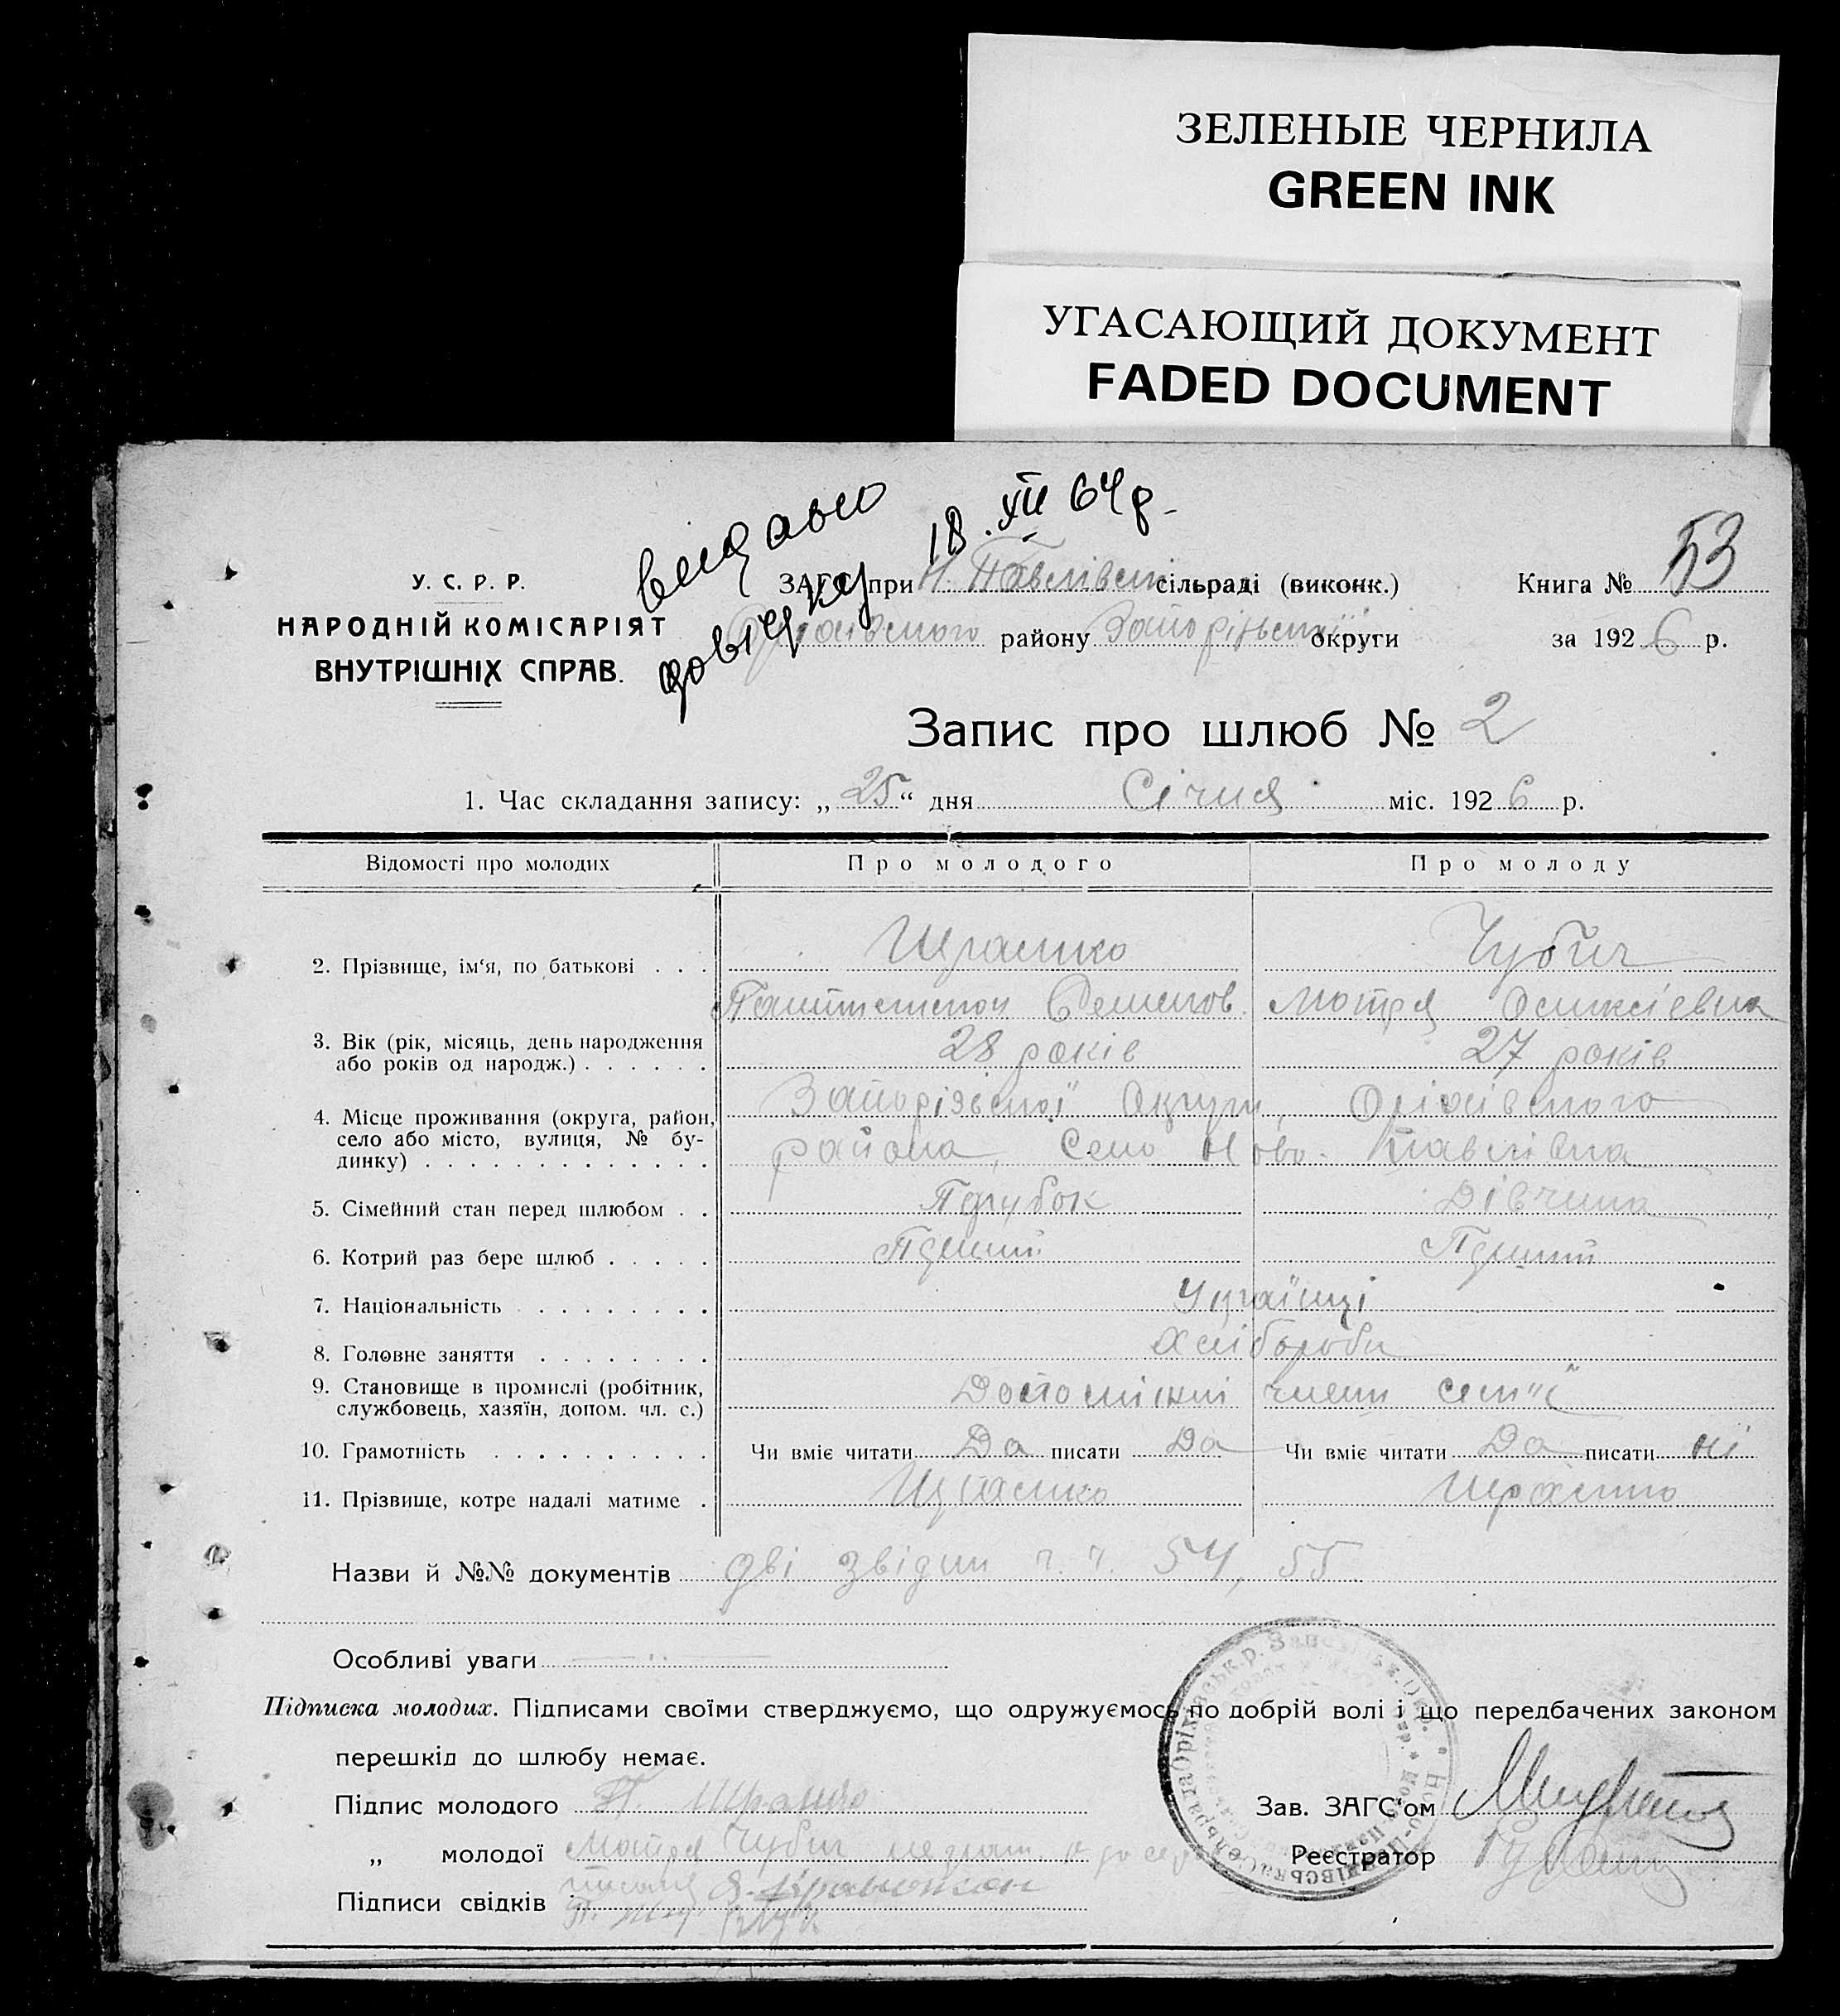 ЗЕЛЕНЫЕ ЧЕРНИЛА
GREEN INK
УГАСАЮЩИЙ ДОКУМЕНТ
FADED DOCUMENT
видано 18.XII 64р.
довідку
У. С. Р. Р.
НАРОДНІЙ КОМІСАРІЯТ
ВНУТРІШНІХ СПРАВ.
ЗАГС при Н Павлівсь сільраді (виконк.)
Книга № 53
Оріхівського району Запоріжської округи
за 1926 р.
Запис про шлюб № 2
1. Час складання запису: „25“ дня Січня міс. 1926 р.
Відомості про молодих Про молодого Про молоду
2. Прізвище, ім‘я, по батькові . . . Шрамко Чубич
Пантелемон Семенов. Мотря Олексіевна
3. Вік (рік, місяць, день народження 28 років 27 років
або років од народж.) . . . . . .
4. Місце проживання (округа, район, Запорізської Округи, Оріхівского
село або місто, вулиця, № бу- района, Село Ново-Павлівка
динку) . . . . . . . . . . . . .
5. Сімейний стан перед шлюбом . . Парубок Дівчина
6. Котрий раз бере шлюб . . . . . Перший Перший
7. Національність . . . . . . . . . Українці
8. Головне заняття . . . . . . . . Хлібороби
9. Становище в промислі (робітник, член семї
службовець, хазяїн, допом. чл. с.)
10. Грамотність . . . . . . . . . . Чи вміє читати Да писати Да Чи вміє читати Да писати ні
11. Прізвище, котре надалі матиме . Шрамко Шрамко
Назви й №№ документів дві звідки ч. ч. 54, 55
Особливі уваги
Підписка молодих. Підписами своїми стверджуємо, що одружуємось по добрій волі і що передбачених законом
перешкід до шлюбу немає.
Підпис молодого П. Шрамко
Зав. ЗАГС‘ом
„ молодої Мотря Чубич
Реєстратор
Підписи свідків